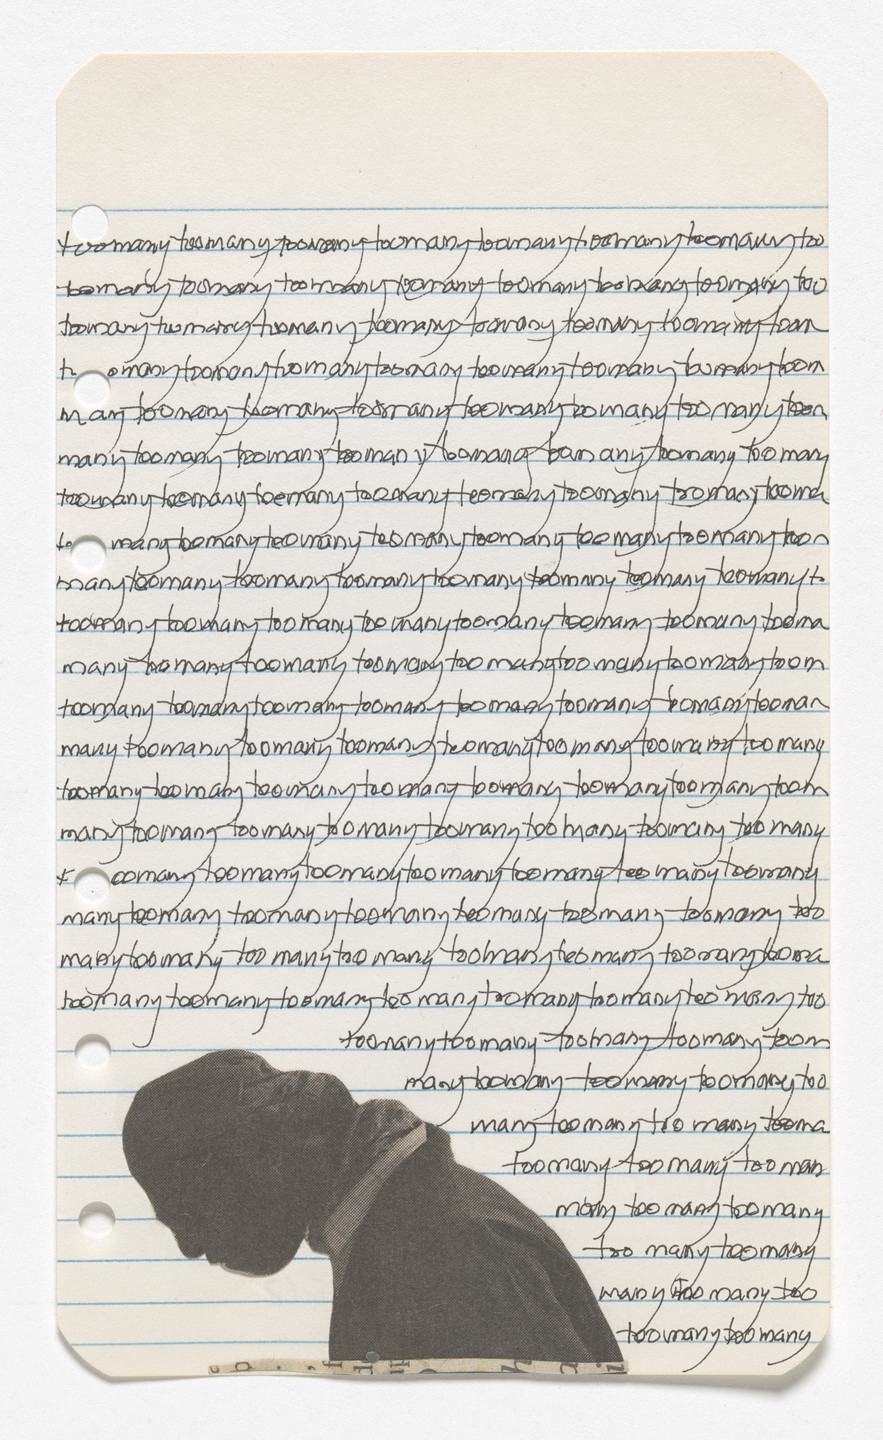 toomanytoomanytoomanytoomanytoomanytoomanytoomanytoo
toomanytoomanytoomanytoomanytoomanytoomanytoomanytoo
toomanytoomanytoomanytoomanytoomanytoomanytoomanytoom
t omanytoomanytoomanytoomanytoomanytoomanytoomanytoom
manytoomanytoomanytoomanytoomanytoomanytoomanytoom
manytoomanytoomanytoomanytoomanytoomanytoomanytoomany
toomanytoomanytoomanytoomanytoomanytoomanytoomanytooma
t manytoomanytoomanytoomanytoomanytoomanytoomanytoom
manytoomanytoomanytoomanytoomanytoomanytoomanytoomanyt
toomanytoomanytoomanytoomanytoomanytoomanytoomanytooma
manytoomanytoomanytoomanytoomanytoomanytoomanytoom
toomanytoomanytoomanytoomanytoomanytoomanytoomanytooman
manytoomanytoomanytoomanytoomanytoomanytoomanytoomany
toomanytoomanytoomanytoomanytoomanytoomanytoomanytoom
manytoomanytoomanytoomanytoomanytoomanytoomanytoomany
t oomanytoomanytoomanytoomanytoomanytoomanytoomany
manytoomanytoomanytoomanytoomanytoomanytoomanytoo
manytoomanytoomanytoomanytoomanytoomanytoomanytooma
toomanytoomanytoomanytoomanytoomanytoomanytoomanytoo
toomanytoomanytoomanytoomanytoom
manytoomanytoomanytoomanytoo
manytoomanytoomanytooma
toomanytoomanytooman
manytoomanytoomany
toomanytoomany
manytoomanytoo
toomanytoomany